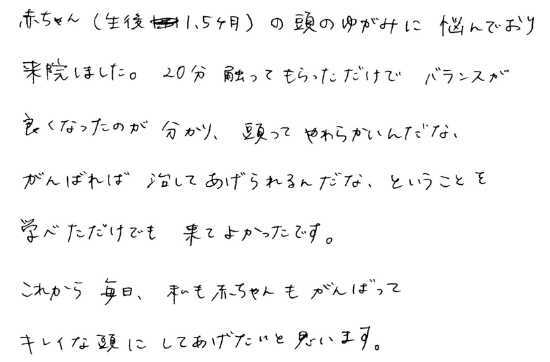 赤ちゃん(生後1.5ヶ月)の頭のゆがみに悩んでおり
来院しました。20分触ってもらっただけでバランスが
良くなったのが分かり、頭ってやわらかいんだな、
がんばれば治してあげられるんだな、ということを
学べただけでも来てよかったです。
これから毎日、私も赤ちゃんもがんばって
キレイな頭にしてあげたいと思います。